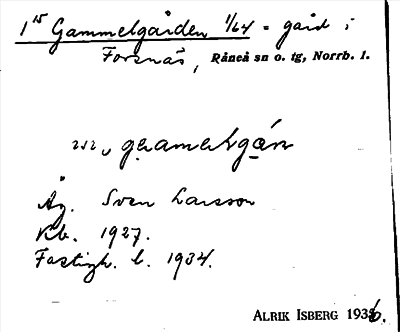 1¹⁵ Gammelgården 1/64 = gård i
Forsnäs, Råneå sn o. tg, Norrb. l.
Äg. Sven Larsson
Kb. 1927.
Fastigh. l. 1934.
ALRIK ISBERG 1936.